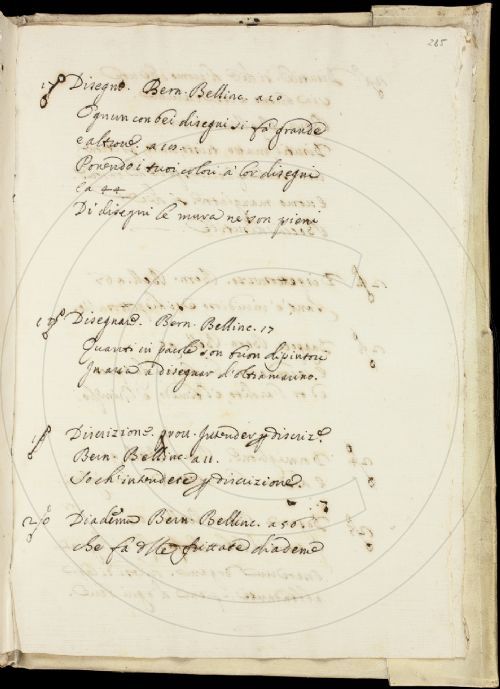 265
Disegno. Bern. Bellinc. a 20
Ognun con bei disegni si fà grande
e altrove. a 101.
Ponendo i tuoi colori à lor disegni
Ea 44
Di disegni le mura ne son pieni
Disegnare. Bern. Bellinc. 17
Quanti in parole son buon dipintori
In aria à disegnar d'oltramarino.
Discrizione. prov. Intender p discriz.e
Bern. Bellinc. a 11.
So ch'intendete p discrizione.
Diadema Bern. Bellinc. a 50.
che fa delle frittate diademe